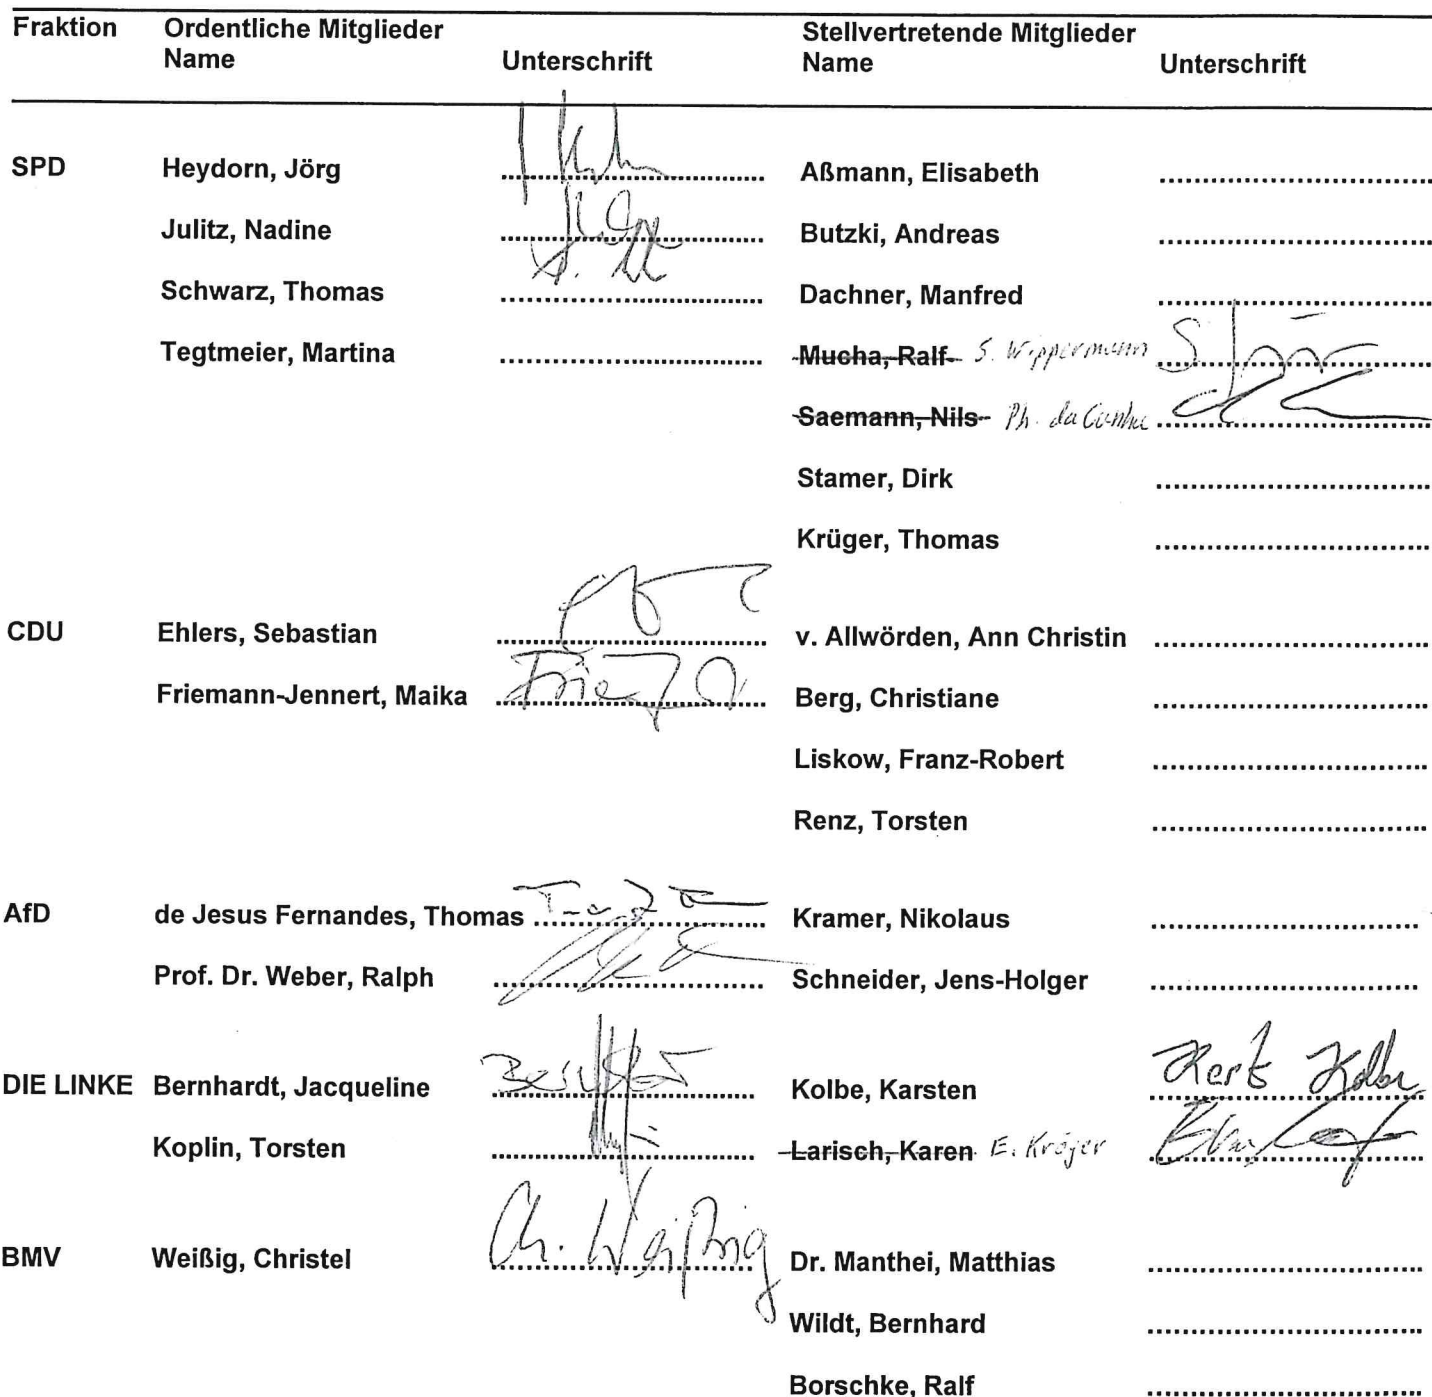 Fraktion Ordentliche Mitglieder Stellvertretende Mitglieder
Name Unterschrift Name Unterschrift
SPD Heydorn, Jörg Aßmann, Elisabeth
Julitz, Nadine Butzki, Andreas
Schwarz, Thomas Dachner, Manfred
Tegtmeier, Martina Mucha, Ralf S. Wippermann
Saemann, Nils Ph. da Cunha
Stamer, Dirk
Krüger, Thomas
CDU Ehlers, Sebastian v. Allwörden, Ann Christin
Friemann-Jennert, Maika Berg, Christiane
Liskow, Franz-Robert
Renz, Torsten
AfD de Jesus Fernandes, Thomas Kramer, Nikolaus
Prof. Dr. Weber, Ralph Schneider, Jens-Holger
DIE LINKE Bernhardt, Jacqueline Kolbe, Karsten
Koplin, Torsten Larisch, Karen E. Kröger
BMV Weißig, Christel Ch. Weißig Dr. Manthei, Matthias
Wildt, Bernhard
Borschke, Ralf